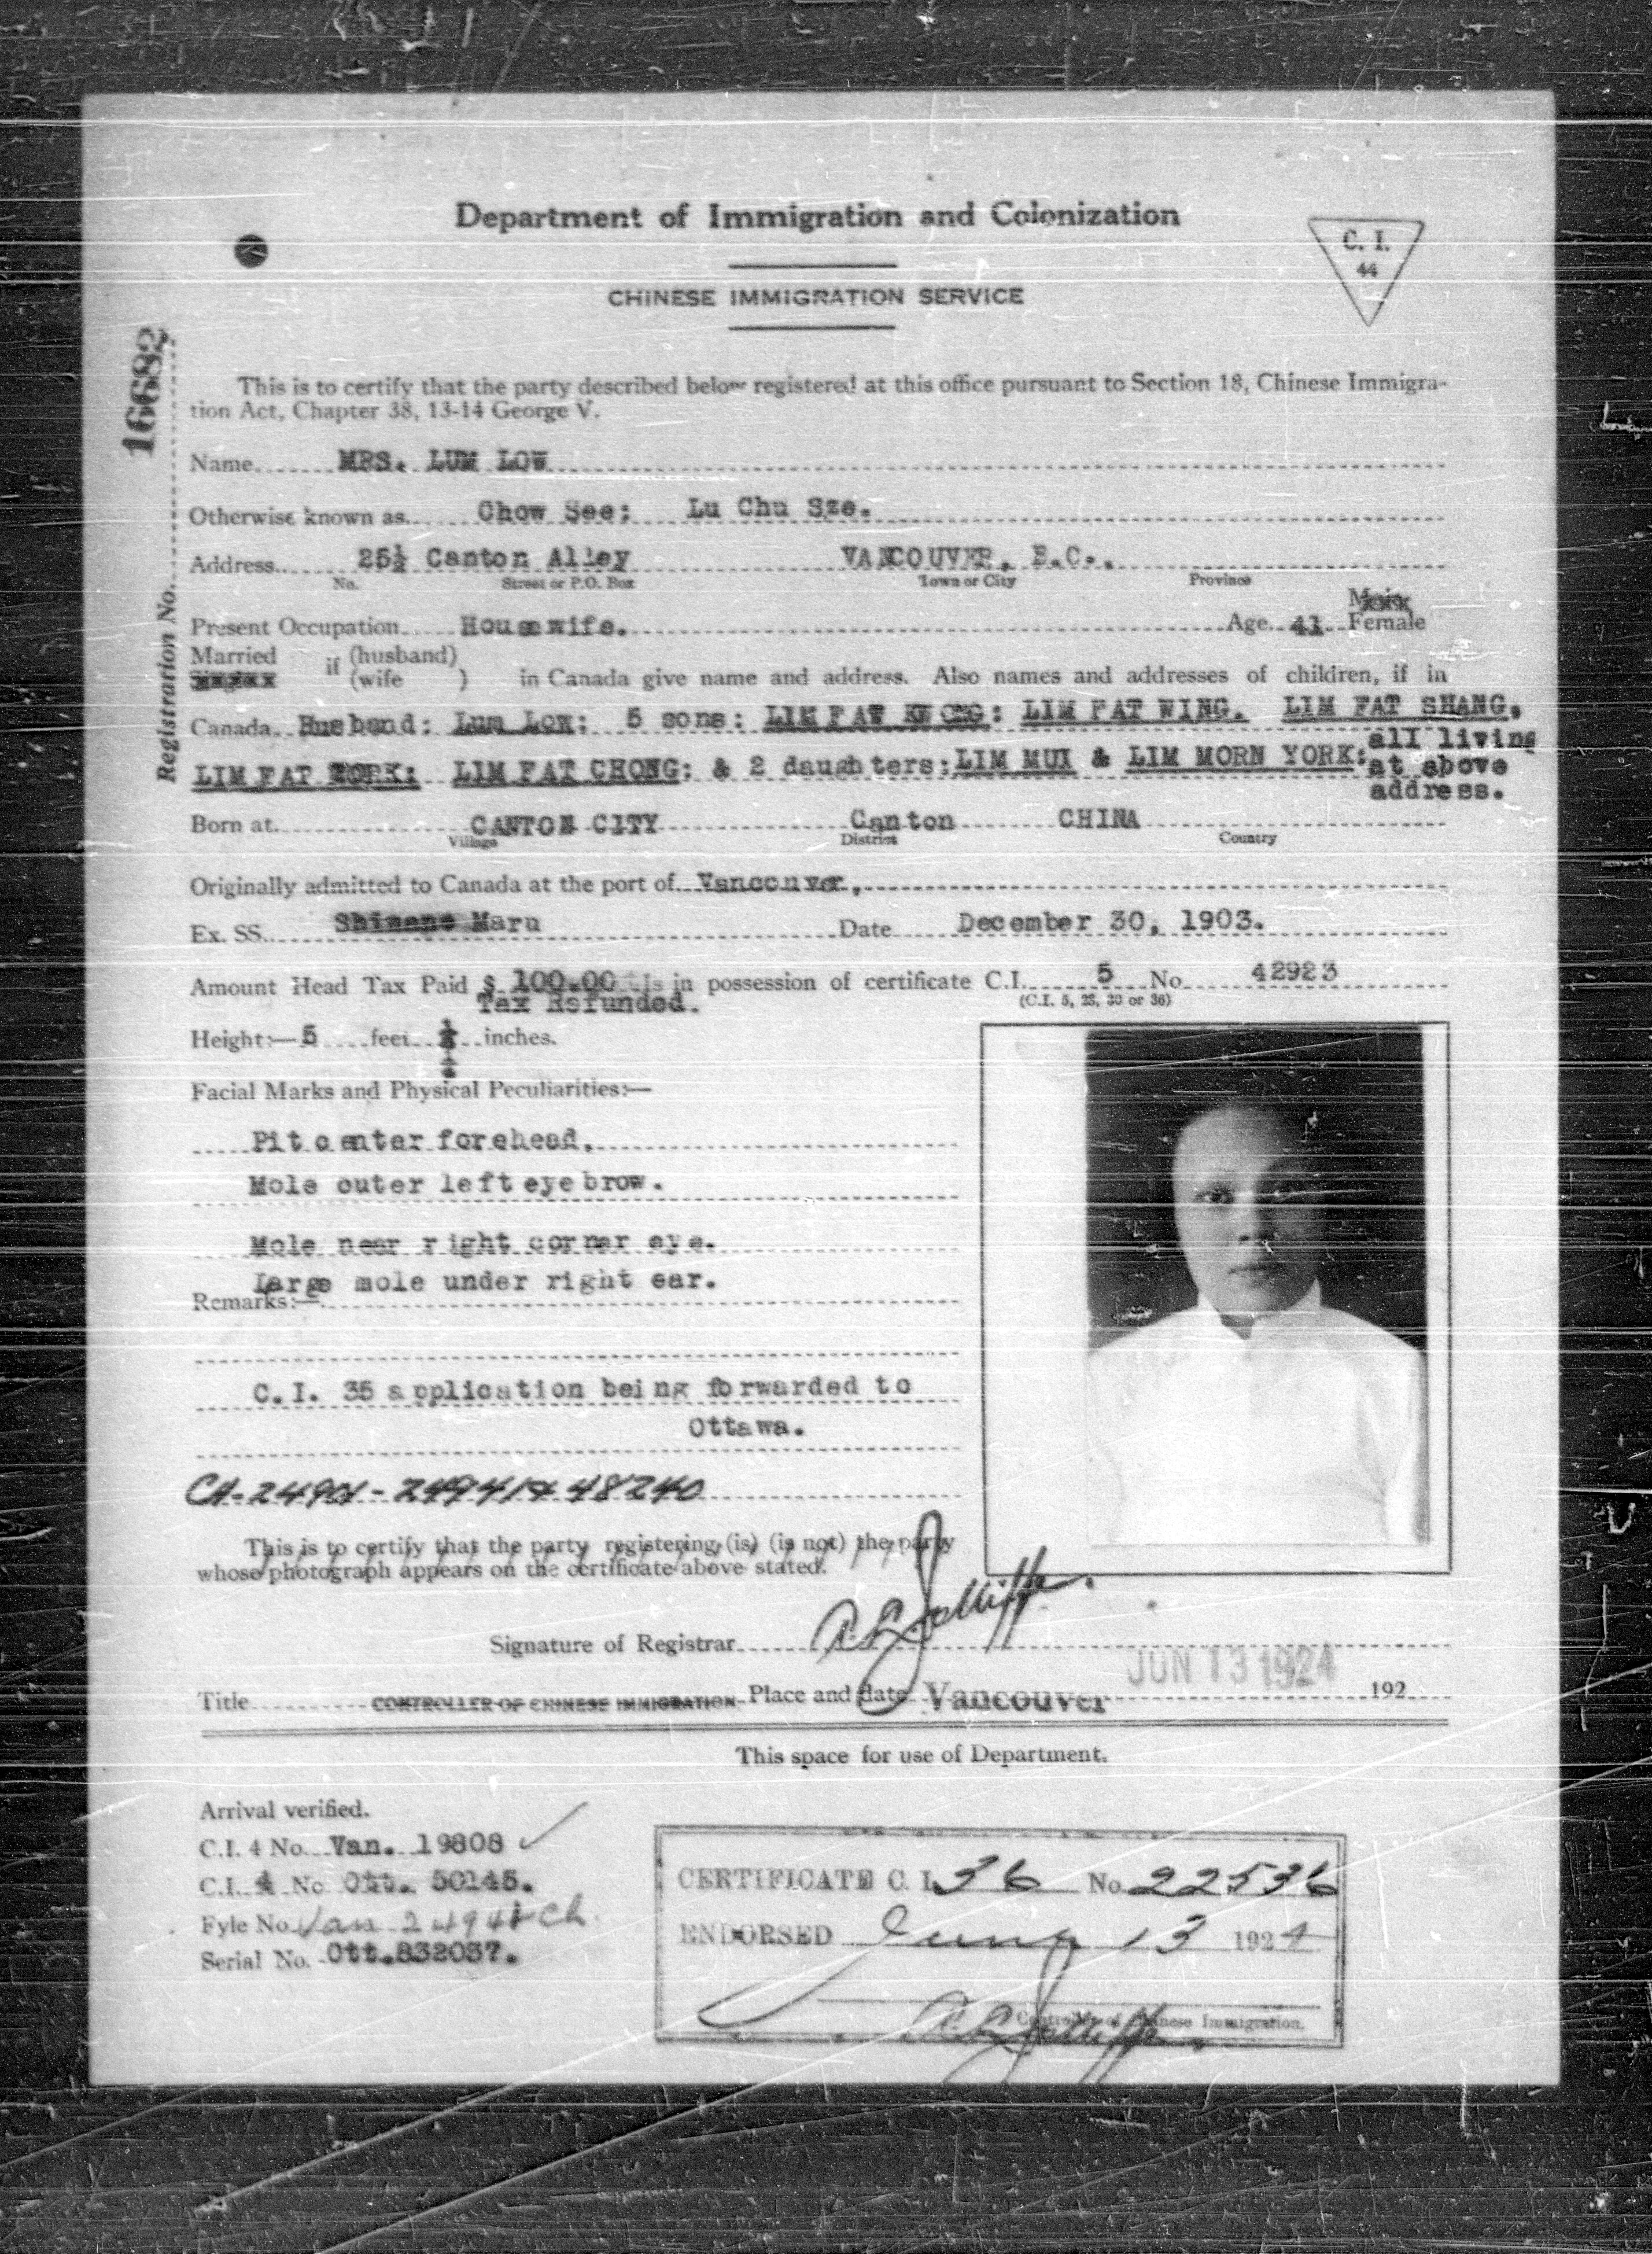 Department of Immigration and Colonization
C. I.
44
CHINESE IMMIGRATION SERVICE
16682
Registration No.
This is to certify that the party described below registered at this office pursuant to Section 18, Chinese Immigra-
tion Act, Chapter 38, 13-14 George V.
Name MRS. LUM LOW
Otherwise known as Chow See; Lu Chu Sze.
Address 25½ Canton Alley VANCOUVER, B.C.,
No. Street or P.O. Box Town or City Province
Male
Present Occupation Housewife. Age 41 Female
Married if (husband)
(wife ) in Canada give name and address. Also names and addresses of children, if in
Canada Husband: Lum Low; 5 sons: LIM FAT KWONG: LIM FAT WING. LIM FAT SHANG,
LIM FAT YORK: LIM FAT CHONG: & 2 daughters; LIM MUI & LIM MORN YORK: all living
at above
address.
Born at CANTON CITY Canton CHINA
Village District Country
Originally admitted to Canada at the port of Vancouver,
Ex. SS. Maru Date December 30, 1903.
Amount Head Tax Paid $ 100.00 Is in possession of certificate C.I. 5 No. 42923
Tax Refunded. (C.I. 5, 28, 30 or 36)
Height:— 5 feet inches.
Facial Marks and Physical Peculiarities:—
Pit center forehead,
Mole outer left eyebrow.
Mole near right corner eye.
Large mole under right ear.
Remarks:—
C.I. 35 application being forwarded to
Ottawa.
This is to certify that the party registering (is) (is not) the party
whose photograph appears on the certificate above stated.
Signature of Registrar A. L. Jolliffe.
Title CONTROLLER OF CHINESE IMMIGRATION Place and date Vancouver JUN 13 1924 192
This space for use of Department.
Arrival verified.
C.I. 4 No. Van. 19808 ✓
C.I. 4 No Ott. 50145.
Fyle No. Van
Serial No. Ott.832037.
CERTIFICATE C. I. 36 No. 22536
ENDORSED June 13 1924
A. L. Jolliffe.
Controller of Chinese Immigration.